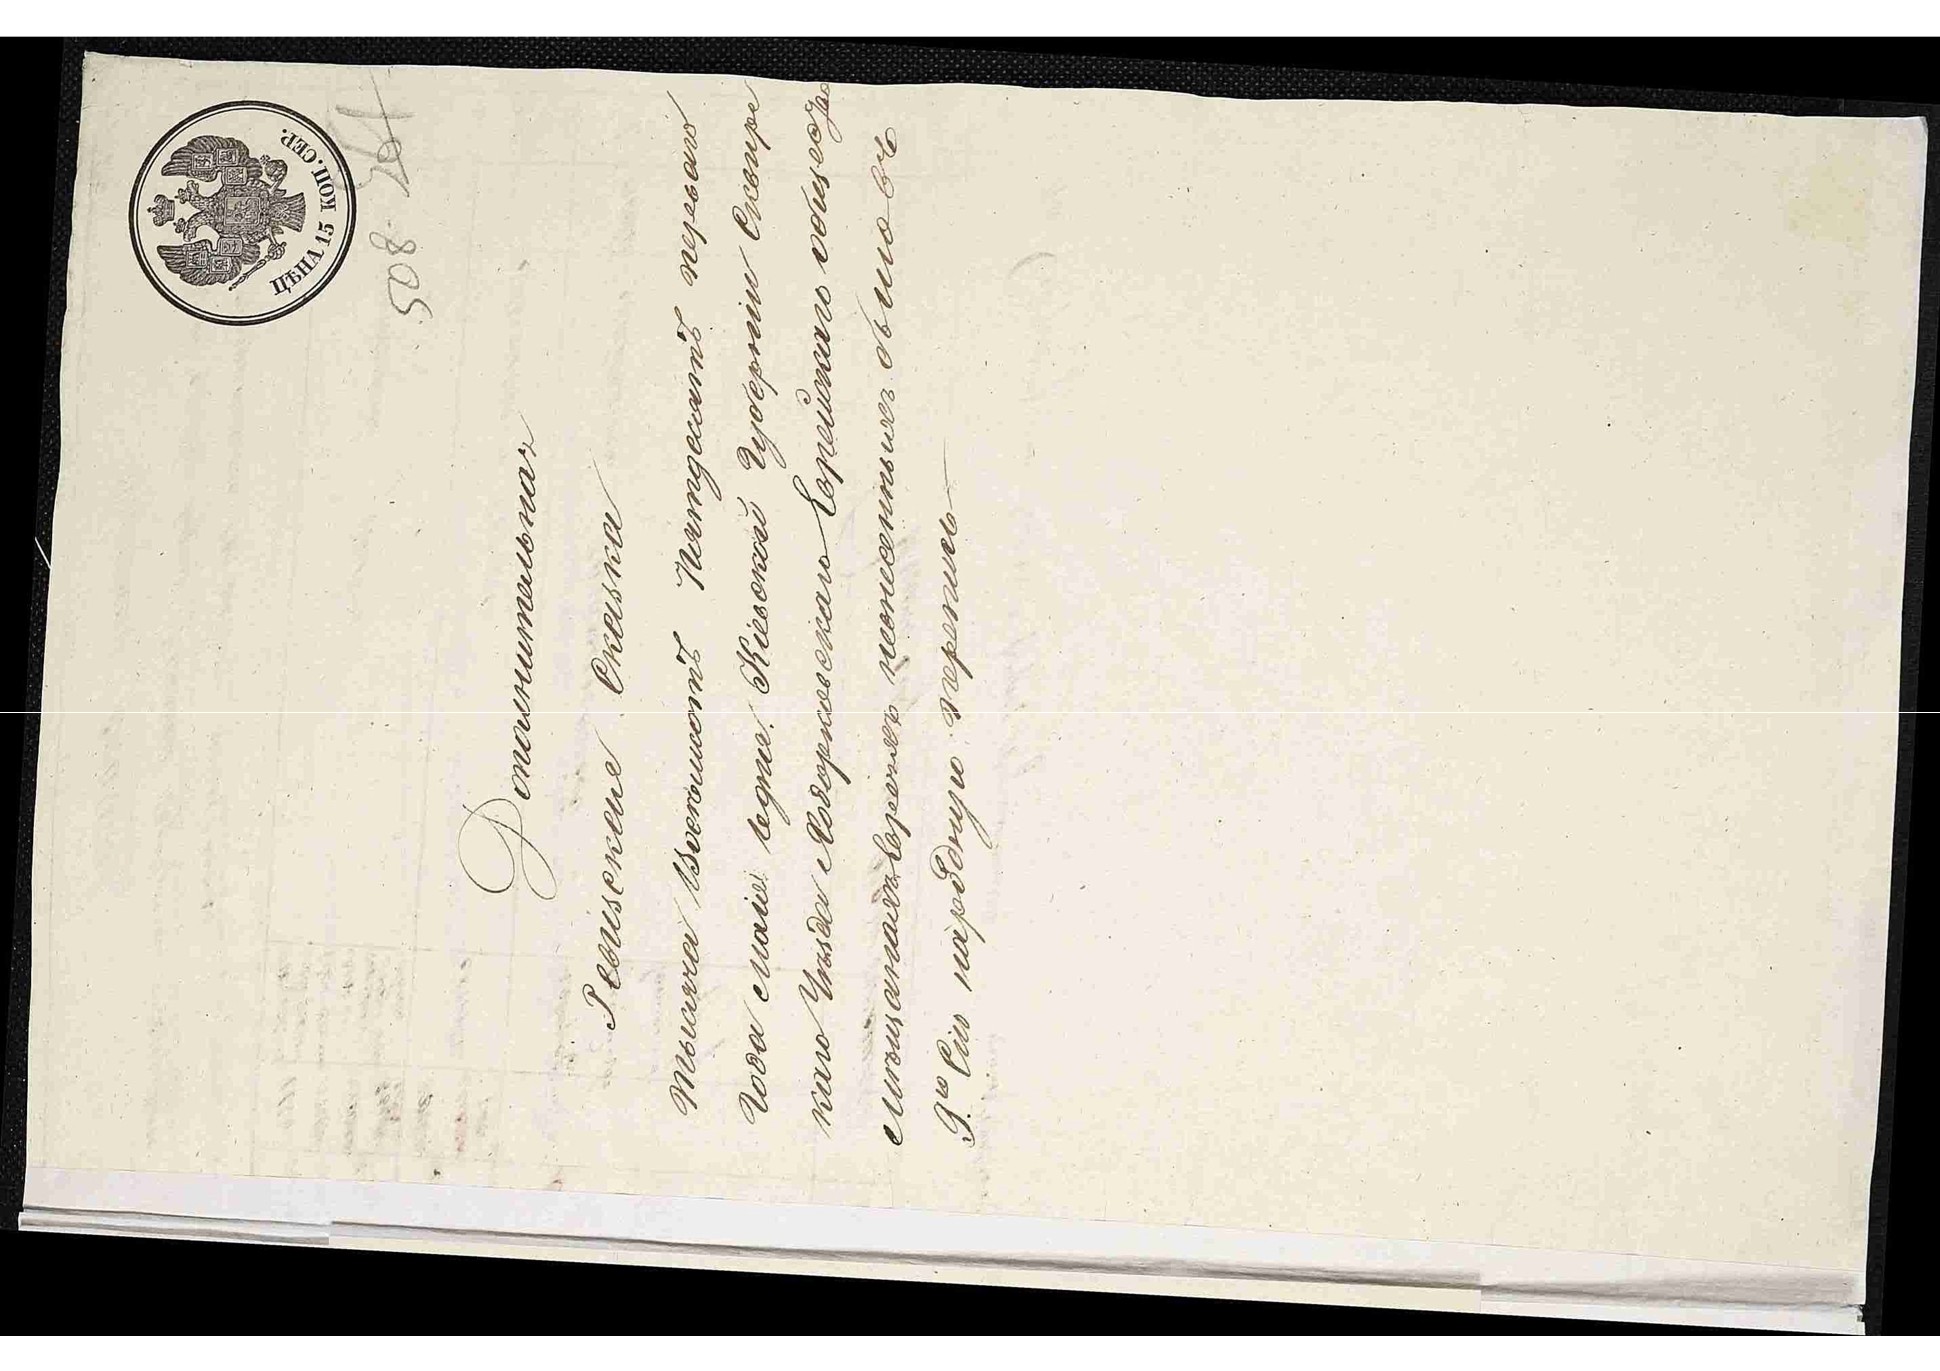 ЦѢНА 15 КОП. СЕР.
508
Дополнительная
Ревизская Сказка
Тысяча Восемьсотъ Пятдесятъ перваго
Года Маія дня. Кіевской Губерніи Сквирс
каго Уѣзда Еврейскаго общества
Мѣщанахъ Евреяхъ
9ю народную перепись